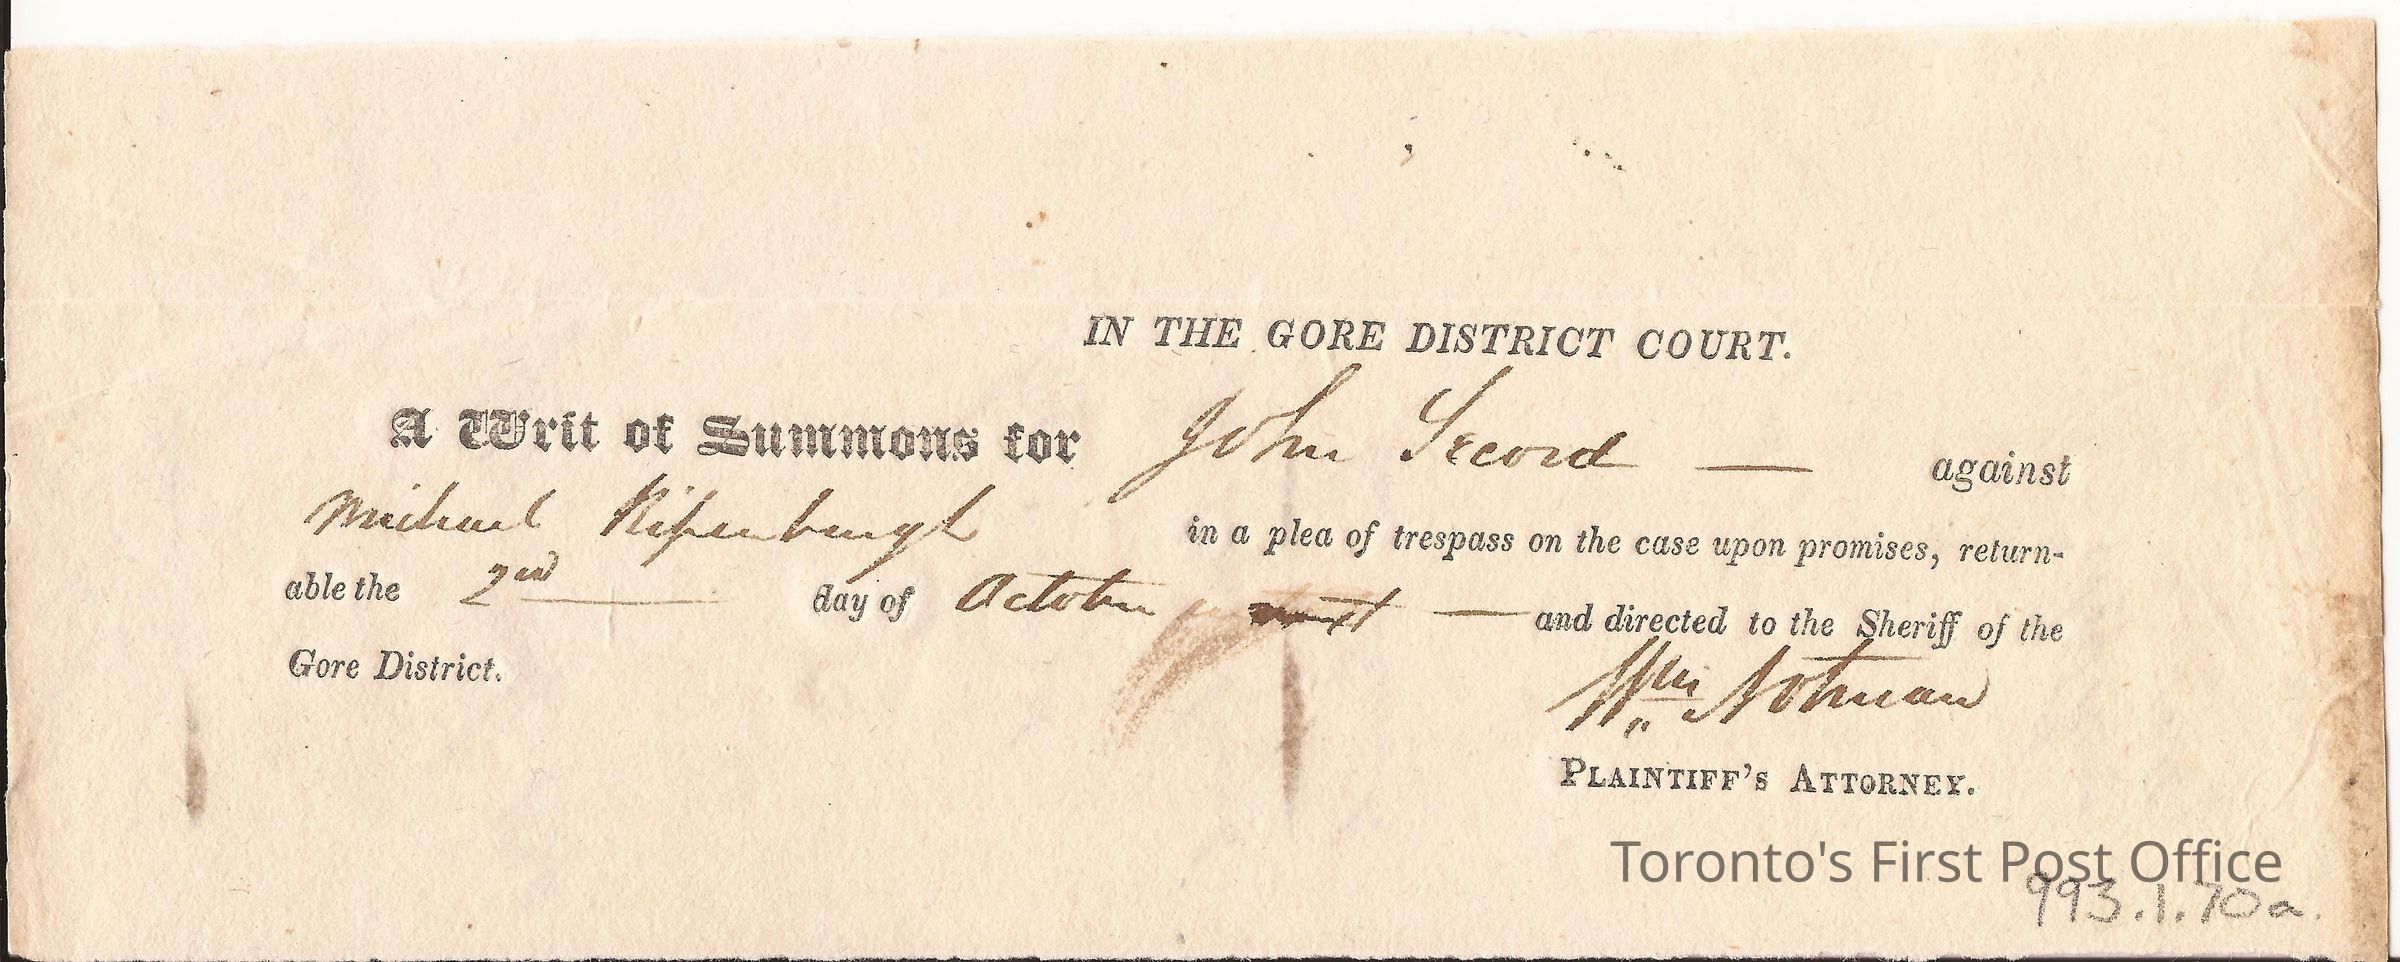 IN THE GORE DISTRICT COURT.
A Writ of Summons for John Secord — against
Michael in a plea of trespass on the case upon promises, return-
able the 2nd — day of October next — and directed to the Sheriff of the
Gore District.
Wm Notman
PLAINTIFF'S ATTORNEY.
Toronto's First Post Office
993.1.70a.